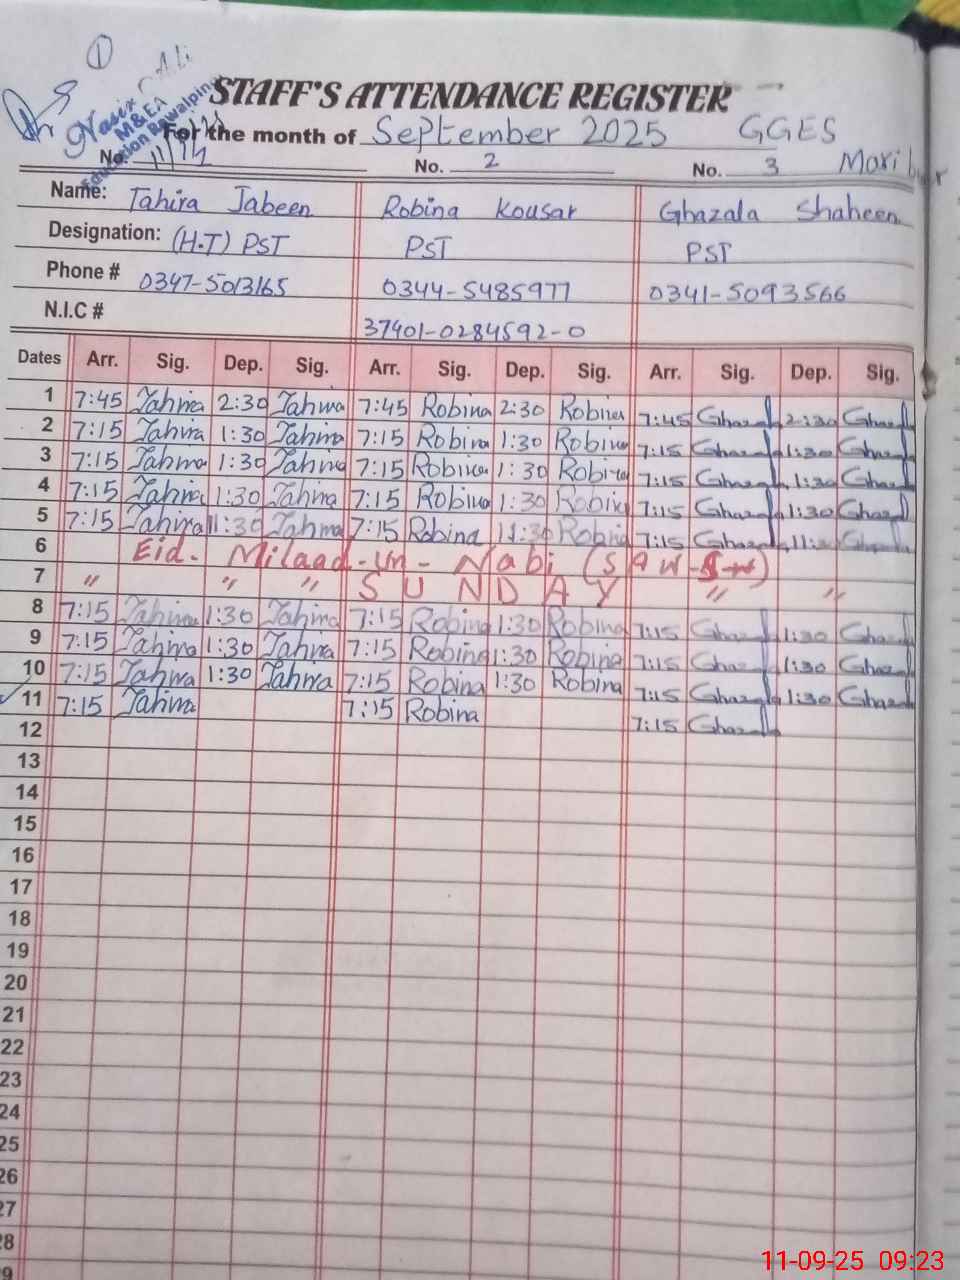 1
Nasir Ali
M&EA
Education Rawalpindi
STAFF'S ATTENDANCE REGISTER
For the month of September 2025 GGES
No. No. 2 No. 3 Mori
Name: Tahira Jabeen Robina Kousar Ghazala Shaheen
Designation: (H.T) PST PST PST
Phone # 0347-5013165 0344-5485977 0341-5093566
N.I.C # 37401-0284592-0
Dates Arr. Sig. Dep. Sig. Arr. Sig. Dep. Sig. Arr. Sig. Dep. Sig.
1 7:45 Tahira 2:30 Tahira 7:45 Robina 2:30 Robina 7:45 Ghazala 2:30 Ghazala
2 7:15 Tahira 1:30 Tahira 7:15 Robina 1:30 Robina 7:15 Ghazala 1:30 Ghazala
3 7:15 Tahira 1:30 Tahira 7:15 Robina 1:30 Robina 7:15 Ghazala 1:30 Ghazala
4 7:15 Tahira 1:30 Tahira 7:15 Robina 1:30 Robina 7:15 Ghazala 1:30 Ghazala
5 7:15 Tahira 11:30 Tahira 7:15 Robina 11:30 Robina 7:15 Ghazala 11:30 Ghazala
6 Eid- Milaad-un- Nabi (S A W
7 " " " S U N D A Y " "
8 7:15 Tahira 1:30 Tahira 7:15 Robina 1:30 Robina 7:15 Ghazala 1:30 Ghazala
9 7:15 Tahira 1:30 Tahira 7:15 Robina 1:30 Robina 7:15 Ghazala 1:30 Ghazala
10 7:15 Tahira 1:30 Tahira 7:15 Robina 1:30 Robina 7:15 Ghazala 1:30 Ghazala
11 7:15 Tahira 7:15 Robina 7:15 Ghazala
12
13
14
15
16
17
18
19
20
21
22
23
24
25
26
27
28
29
11-09-25 09:23